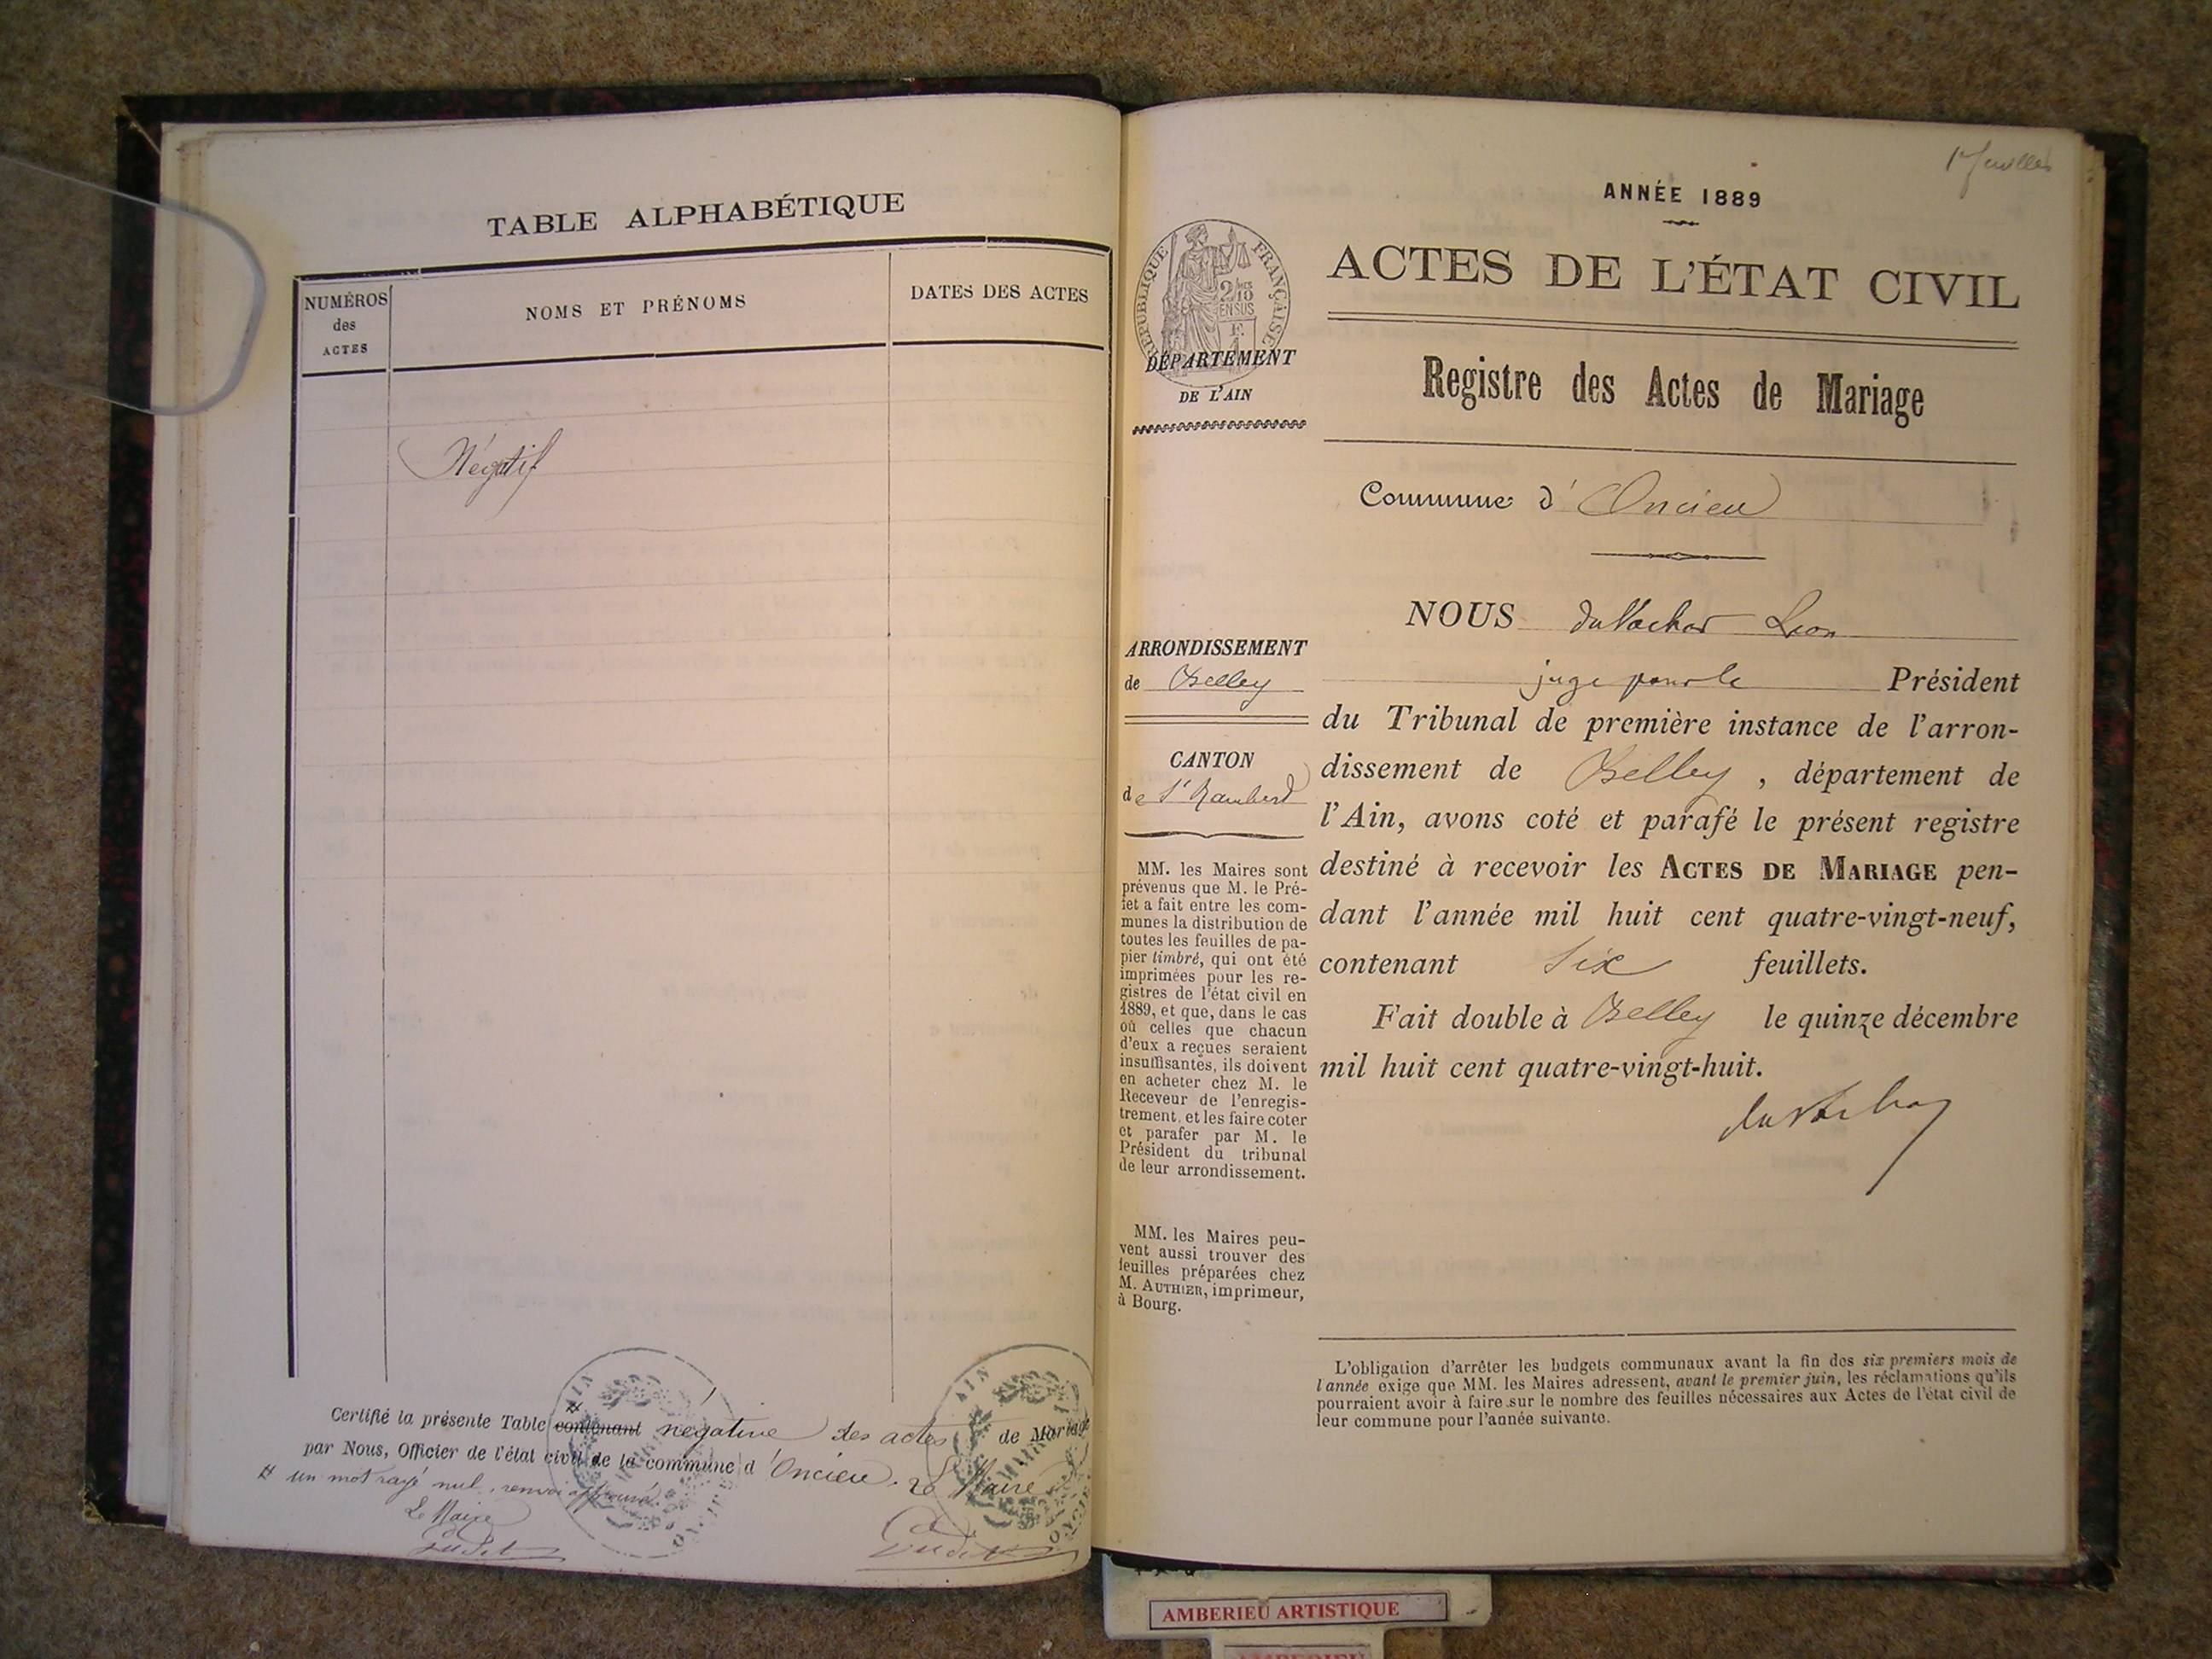 TABLE ALPHABÉTIQUE
NUMÉROS
des
ACTES
NOMS ET PRÉNOMS
DATES DES ACTES
Négatif
Certifié la présente Table contenant négative des actes de Mariage
par Nous, Officier de l'état civil de la commune d'Oncieu. Le Maire
un mot rayé nul, renvoi approuvé.
Le Maire
1er feuillet
ANNÉE 1889
ACTES DE L'ÉTAT CIVIL
RÉPUBLIQUE FRANÇAISE
2/10
EN SUS
DÉPARTEMENT
DE L'AIN
Registre des Actes de Mariage
Commune d'Oncieu
ARRONDISSEMENT
de Belley
CANTON
de St Rambert
MM. les Maires sont
prévenus que M. le Pré-
fet a fait entre les com-
munes la distribution de
toutes les feuilles de pa-
pier timbré, qui ont été
imprimées pour les re-
gistres de l'état civil en
1889, et que, dans le cas
où celles que chacun
d'eux a reçues seraient
insuffisantes, ils doivent
en acheter chez M. le
Receveur de l'enregis-
trement, et les faire coter
et parafer par M. le
Président du tribunal
de leur arrondissement.
MM. les Maires peu-
vent aussi trouver des
feuilles préparées chez
M. AUTHIER, imprimeur,
à Bourg.
NOUS Léon
juge pour le Président
du Tribunal de première instance de l'arron-
dissement de Belley, département de
l'Ain, avons coté et parafé le présent registre
destiné à recevoir les ACTES DE MARIAGE pen-
dant l'année mil huit cent quatre-vingt-neuf,
contenant six feuillets.
Fait double à Belley le quinze décembre
mil huit cent quatre-vingt-huit.
L'obligation d'arrêter les budgets communaux avant la fin des six premiers mois de
l'année exige que MM. les Maires adressent, avant le premier juin, les réclamations qu'ils
pourraient avoir à faire sur le nombre des feuilles nécessaires aux Actes de l'état civil de
leur commune pour l'année suivante.
AMBERIEU ARTISTIQUE
AMBERIEU